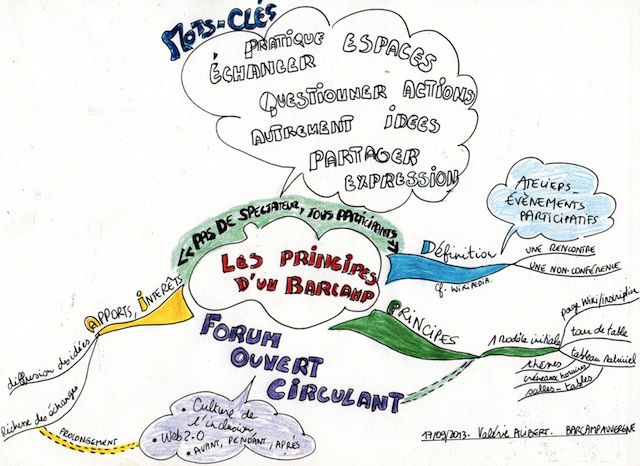 MOTS-CLÉS
PRATIQUE ESPACES
ÉCHANGER
QUESTIONNER ACTIONS
AUTREMENT IDEES
PARTAGER
EXPRESSION
« PAS DE SPECTATEUR, TOUS PARTICIPANTS »
LES PRINCIPES
D'UN BARCAMP
Définition
cf. WIKIPEDIA.
ATELIERS-
ÉVÈNEMENTS
PARTICIPATIFS
UNE RENCONTRE
UNE NON-CONFÉRENCE
PRINCIPES
1 Modèle initial
page Wiki/inscription
tour de table
thèmes
créneaux horaires
salles-tables
APPORTS, INTÉRÊTS
diffusion des idées
Richesse des échanges
PROLONGEMENT
FORUM
OUVERT
CIRCULANT
• Culture de
l'inclusion
• Web 2.0
• AVANT, PENDANT, APRES
17/09/2013. Valérie ALIBERT. BARCAMPAUVERGNE